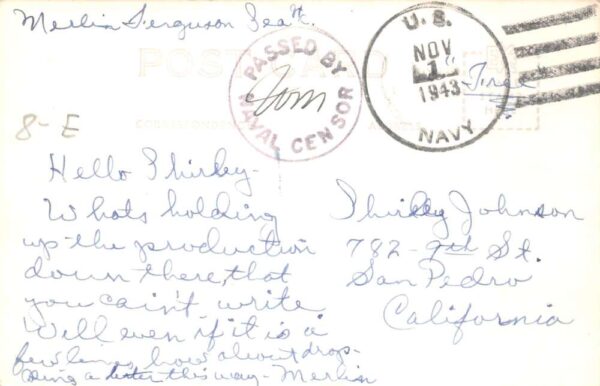 Merlin Ferguson Sea 1/c.
POST CARD
PASSED BY
NAVAL CENSOR
Tom
U.S.
NOV
1
1943
NAVY
Free
8-E
CORRESPONDENCE
Hello Shirley-
Whats holding
up the production
down there, that
you cain't write
Well even if it is a
few lines, how about drop-
ping a letter this way - Merlin
Shirley Johnson
782-9th St.
San Pedro
California